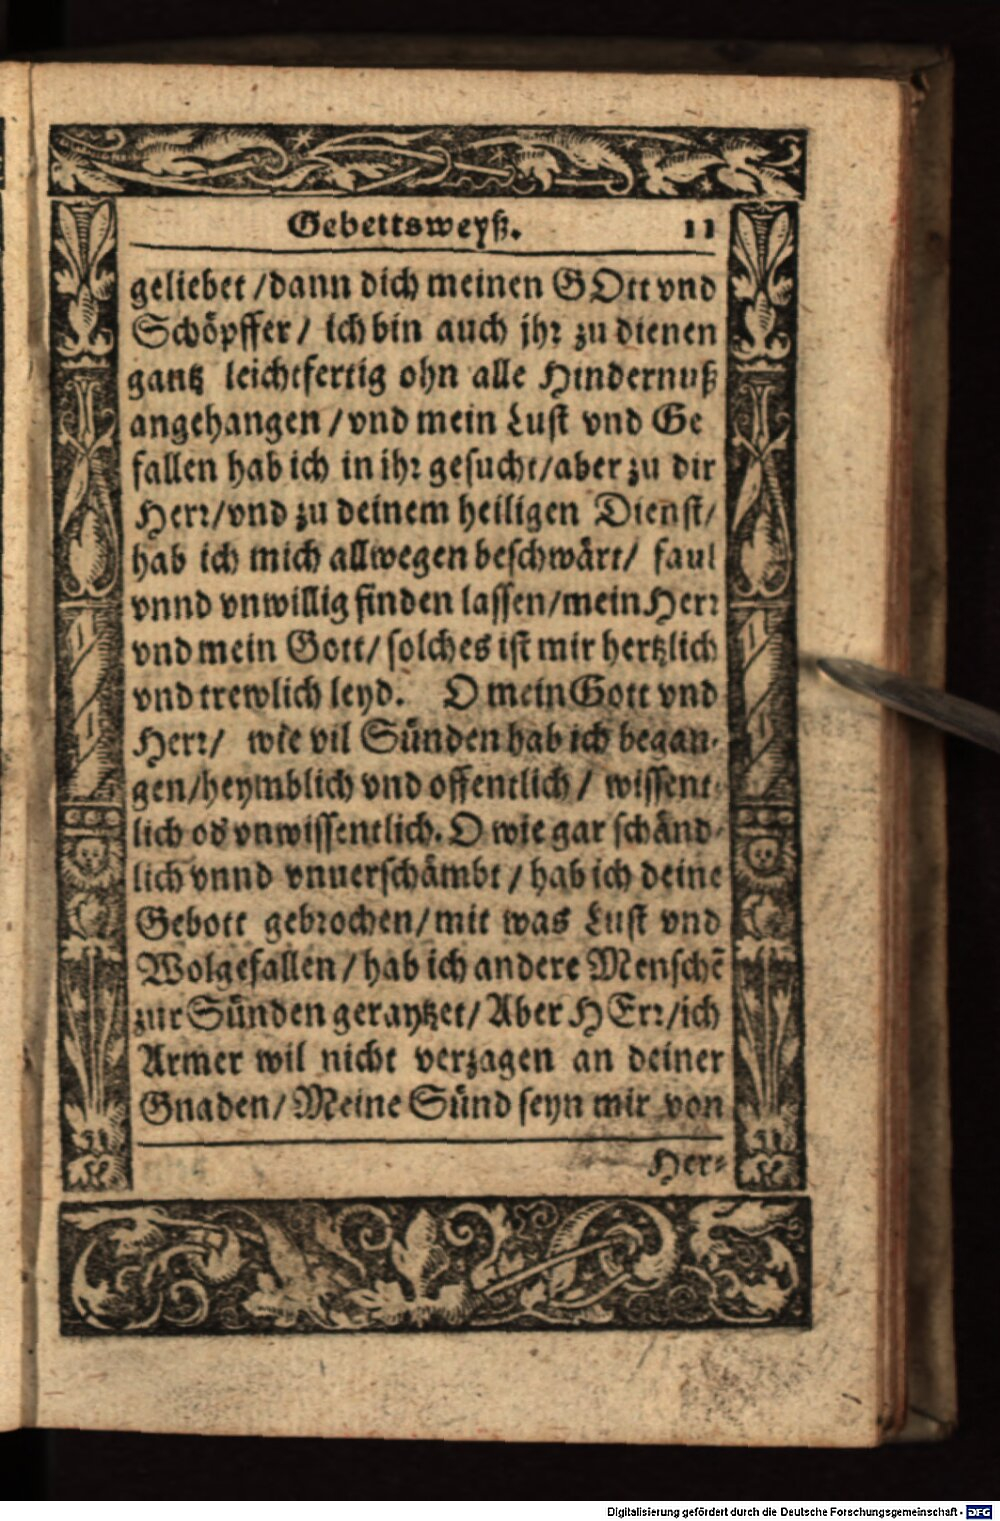 Gebettsweyß. 11
geliebet / dann dich meinen GOtt vnd
Schöpffer / ich bin auch jhr zu dienen
gantz leichtfertig ohn alle Hindernuß
angehangen / vnd mein Lust vnd Ge
fallen hab ich in ihr gesucht / aber zu dir
Herr / vnd zu deinem heiligen Dienst /
hab ich mich allwegen beschwärt / faul
vnnd vnwillig finden lassen / mein Herr
vnd mein Gott / solches ist mir hertzlich
vnd trewlich leyd. O mein Gott vnd
Herr / wie vil Sünden hab ich began-
gen / heymblich vnd offentlich / wissent-
lich od vnwissentlich. O wie gar schänd-
lich vnnd vnuerschämbt / hab ich deine
Gebott gebrochen / mit was Lust vnd
Wolgefallen / hab ich andere Menschē
zur Sünden geraytzet / Aber HErr / ich
Armer wil nicht verzagen an deiner
Gnaden / Meine Sünd seyn mir von
Her-
Digitalisierung gefördert durch die Deutsche Forschungsgemeinschaft - DFG